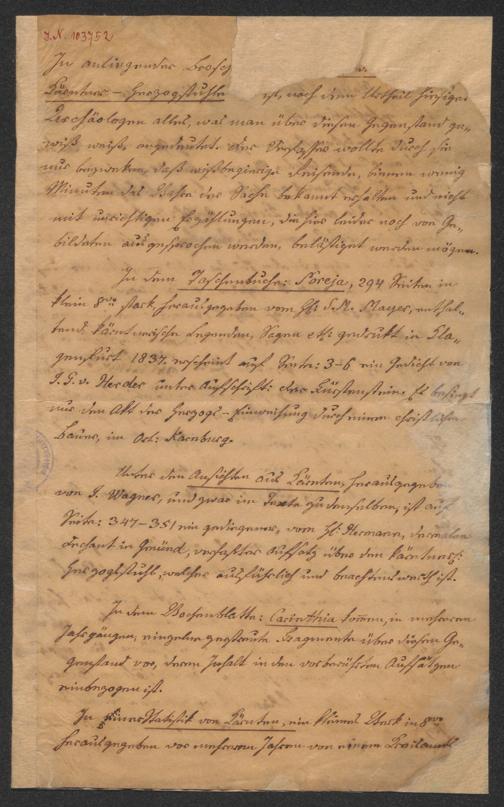 J.N. 103752
In anliegender Brosch
Kärntner-Herzogstuhle ist, nach dem Urtheil hiesiger
Archäologen alles, was man über diesen Gegenstand ge-
wiß weiß, angedeutet. Der Verfasser wollte durch sie
nur bezwecken, daß wißbegierige Reisende, binnen wenig
Minuten das Wahre der Sache bekannt erhalten und nicht
mit unrichtigen Erzählungen, die hier leider noch von Ge-
bildeten ausgesprochen werden, belästiget werden mögen.
In dem Taschenbuche: Noreja, 294 Seiten in
klein 8vo stark, herausgegeben vom H: S. M. Mayer, enthal-
tend kärntnerische Legenden, Sagen etc: gedruckt in Kla-
genfurt 1837, erscheint auf Seite: 3-6 ein Gedicht von
J. G. v. Herder unter Aufschrift: der Fürstenstein. Es besingt
nur den Akt der Herzogs-Einweihung durch einen christlichen
Bauer, im Ort: Karnburg.
Unter den Ansichten aus Kärnten, herausgegeben
von J. Wagner, und zwar im Texte zu denselben, ist auf
Seite: 347-351 ein gediegener, vom H: Hermann, dermalen
Dechant in Gmünd, verfaßter Aufsatz über den kärntner:
Herzogstuhl, welcher ausführlich und beachtenswerth ist.
In dem Wochenblatte: Carinthia kommen, in mehreren
Jahrgängen, einzelne zerstreute Fragmente über diesen Ge-
genstand vor, deren Inhalt in den vorberührten Aufsätzen
einbezogen ist.
In einer Statistik von Kärnten, ein kleines Werk in 8vo
herausgegeben vor mehreren Jahren von einem